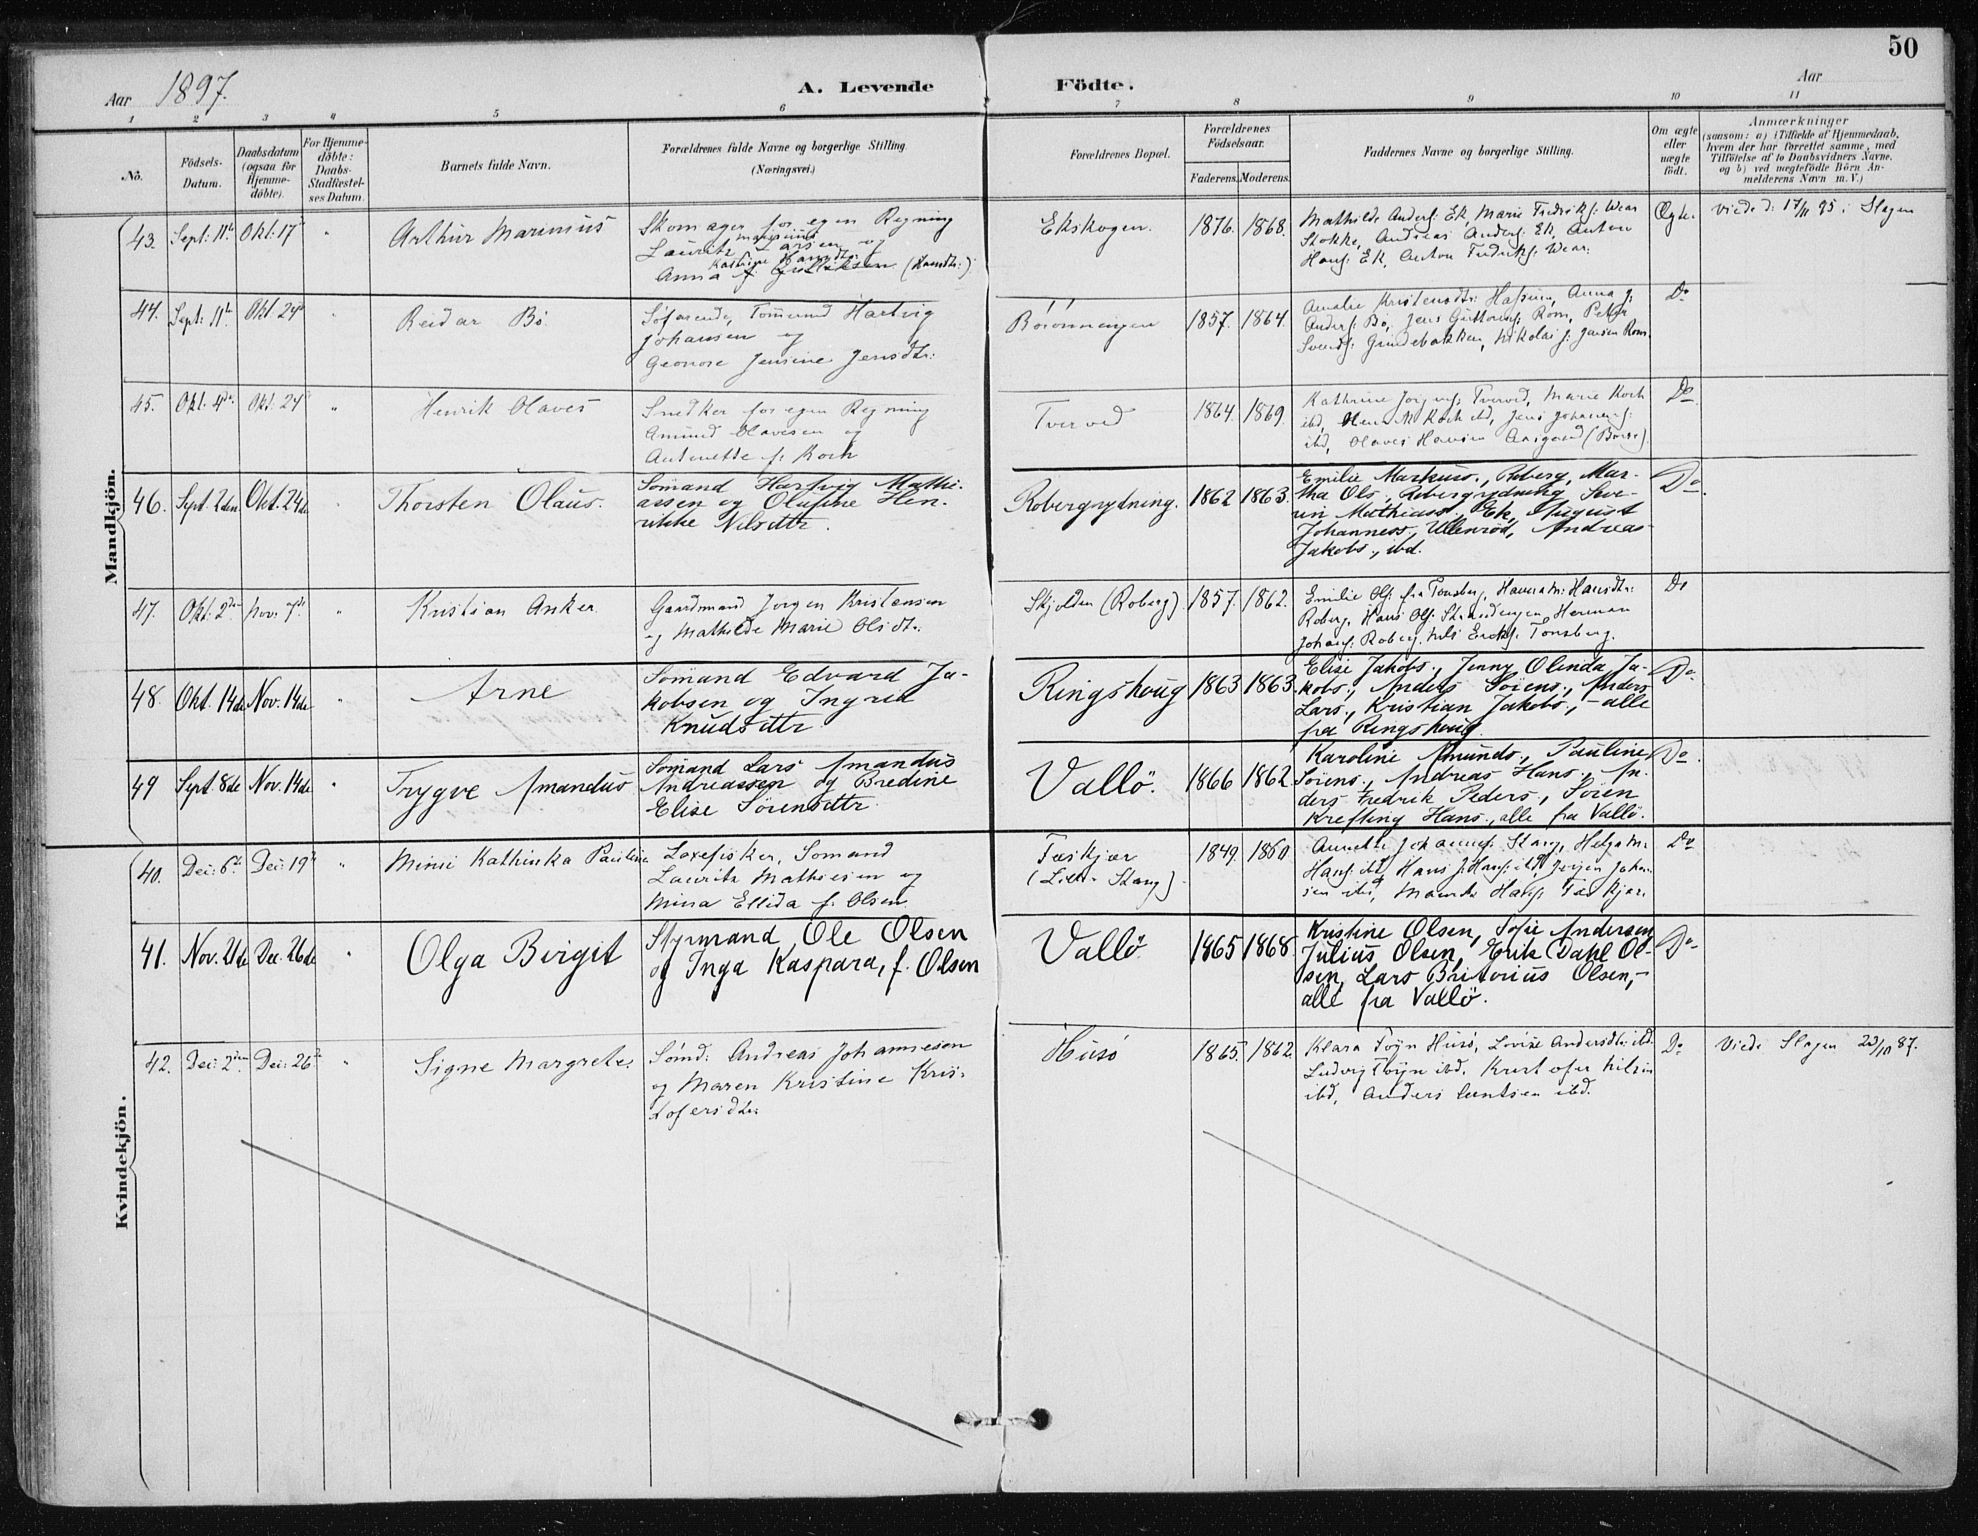 50
Aar 1897.
A. Levende Födte.
Aar
1 2 3 4 5 6 7 8 9 10 11
No.
Födsels-Datum.
Daabsdatum (ogsaa for Hjemme-döbte).
For Hjemme-döbte: Daabs-Stadfæstel-ses Datum.
Barnets fulde Navn.
Forældrenes fulde Navne og borgerlige Stilling.
(Næringsvei.)
Forældrenes Bopæl.
Forældrenes Födselsaar.
Faderens. Moderens.
Faddernes Navne og borgerlige Stilling.
Om ægte eller uægte födt.
Anmærkninger
(saasom: a) i Tilfælde af Hjemmedaab,
hvem der har forrettet samme, med
Tilföielse af to Daabsvidners Navne,
og b) ved uægtefödte Börn An-
melderens Navn m. V.)
Mandkjön.
43. Sept: 11te Okt: 17de " Arthur Marinius
Skomager for egen Regning
Lauritz Marinius Larsen og
Anna Kastine Hansdtr:
f. Gulliksen (Hansdtr:)
Ekskogen. 1876. 1868.
Mathilde Anders: Ek, Marie Fredriks: Wear
Stokke, Andreas Anders: Ek, Anton
Hans: Ek, Anton Fredriks: Wear.
Ægte. Viede d: 17/11 95 i Slagen
44. Sept: 11te Okt 24de " Reidar Bö.
Söfarende, Tommund Hartvig
Johansen og
Geonore Jensine Jensdtr:
Börönningen 1857. 1864.
Amalie Kristensdtr:
Anders: Bö, Jens Guttorms: Rom, Petter
Svends: Grindebakken, Nikolai J: Jensen Rom.
Do
45. Okt: 4de Okt: 24de " Henrik Olaves
Snedker for egen Regning
Amund Olavesen og
Antonette f: Koch
Tverved 1864. 1869.
Kathrine Jörgens: Tverved, Marie Koch
ibd, Koch ibd, Jens Johannes:
ibd, Olaves Hansen Aasgaard
Do
46. Sept. 2den Okt. 24de " Thorsten Olaus.
Sömand Hartvig Mathi-
assen og Olufine Hen-
rikke Nilsdttr.
Robergrydning. 1862 1863.
Emilie Markuss., Roberg, Mar-
tha Ols., Robergrydning, Seve-
rin Mathiass., Ek, August
Johanness., Ullenröd, Andreas
Jakobs., ibd.
Do
47. Okt: 2den Nov: 7de " Kristian Anker.
Gaardmand Jörgen Kristensen
og Mathilde Marie Olsdtr:
Skjolden (Roberg) 1857. 1862.
Emilie Ols: fra Tönsberg, Hansdtr:
Roberg, Hans Ols: Herman
Johans: Roberg, Nils Eriks: Tönsberg.
Do
48. Okt. 14de Nov. 14de " Arne
Sömand Edvard Ja-
kobsen og Ingrid
Knudsdttr
Ringshoug 1863 1863.
Elise Jakobs., Jenny Olinda Ja-
kobs., Anders Sörens., Anders
Lars., Kristian Jakobs., - alle
fra Ringshoug.
Do
49 Sept. 8de Nov. 14de " Trygve Amandus
Sömand Lars Amandus
Andreassen og Bredine
Elise Sörensdttr.
Vallö. 1866 1862.
Karoline Amunds., Pauline
Sörens., Andreas Hans., An-
ders Fredrik Peders., Sören
Krefting Hans., alle fra Vallö.
Do
Kvindekjön.
40. Dec: 6te Dec: 19de " Mimi Kathinka Pauline
Laxefisker, Sömand
Lauritz Mathiesen og
Mina Ellida f: Olsen.
Fæskjær
(Lille Stang) 1849. 1860
Annette Johannes: Stang, Helga M:
Hans: ibd, Hans J: Hans: ibd, Jörgen Johan-
sen ibd,
Do
41. Nov. 21de Dec. 26de " Olga Birgit
Styrmand Ole Olsen
og Inga Kaspara, f. Olsen
Vallö. 1865 1868.
Kristine Olsen, Sofie Andersen,
Julius Olsen, Erik Dahl Ol-
sen, Lars Britorius Olsen, -
alle fra Vallö.
Do
42. Dec: 2den Dec: 26de " Signe Margrete.
Sömd: Andreas Johannesen
og Maren Kristine Kris-
tofersdtr:
Husö 1865. 1862.
Klara Föyn Husö, Lovise Andersdtr: ibd.
Ludvig Föyn ibd. Kristofer Nilsen
ibd, Anders Lentsen ibd.
Do Viede Slagen 23/10 87.